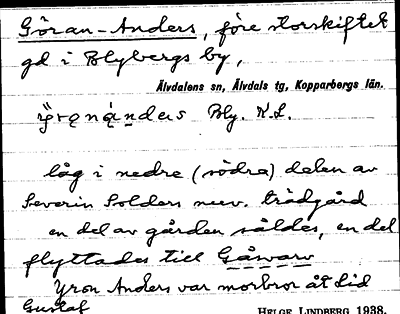 Göran-Anders, före storskiftet
gd i Blybergs by,
Älvdalens sn, Älvdals tg, Kopparbergs län.
Bly. K.L.
låg i nedre (södra) delen av
Severin Solders nuv. trädgård
en del av gården såldes, en del
flyttades till Gåsvarv
Yron Anders var morbror åt Lid
Gustaf
HELGE LINDBERG 1938.